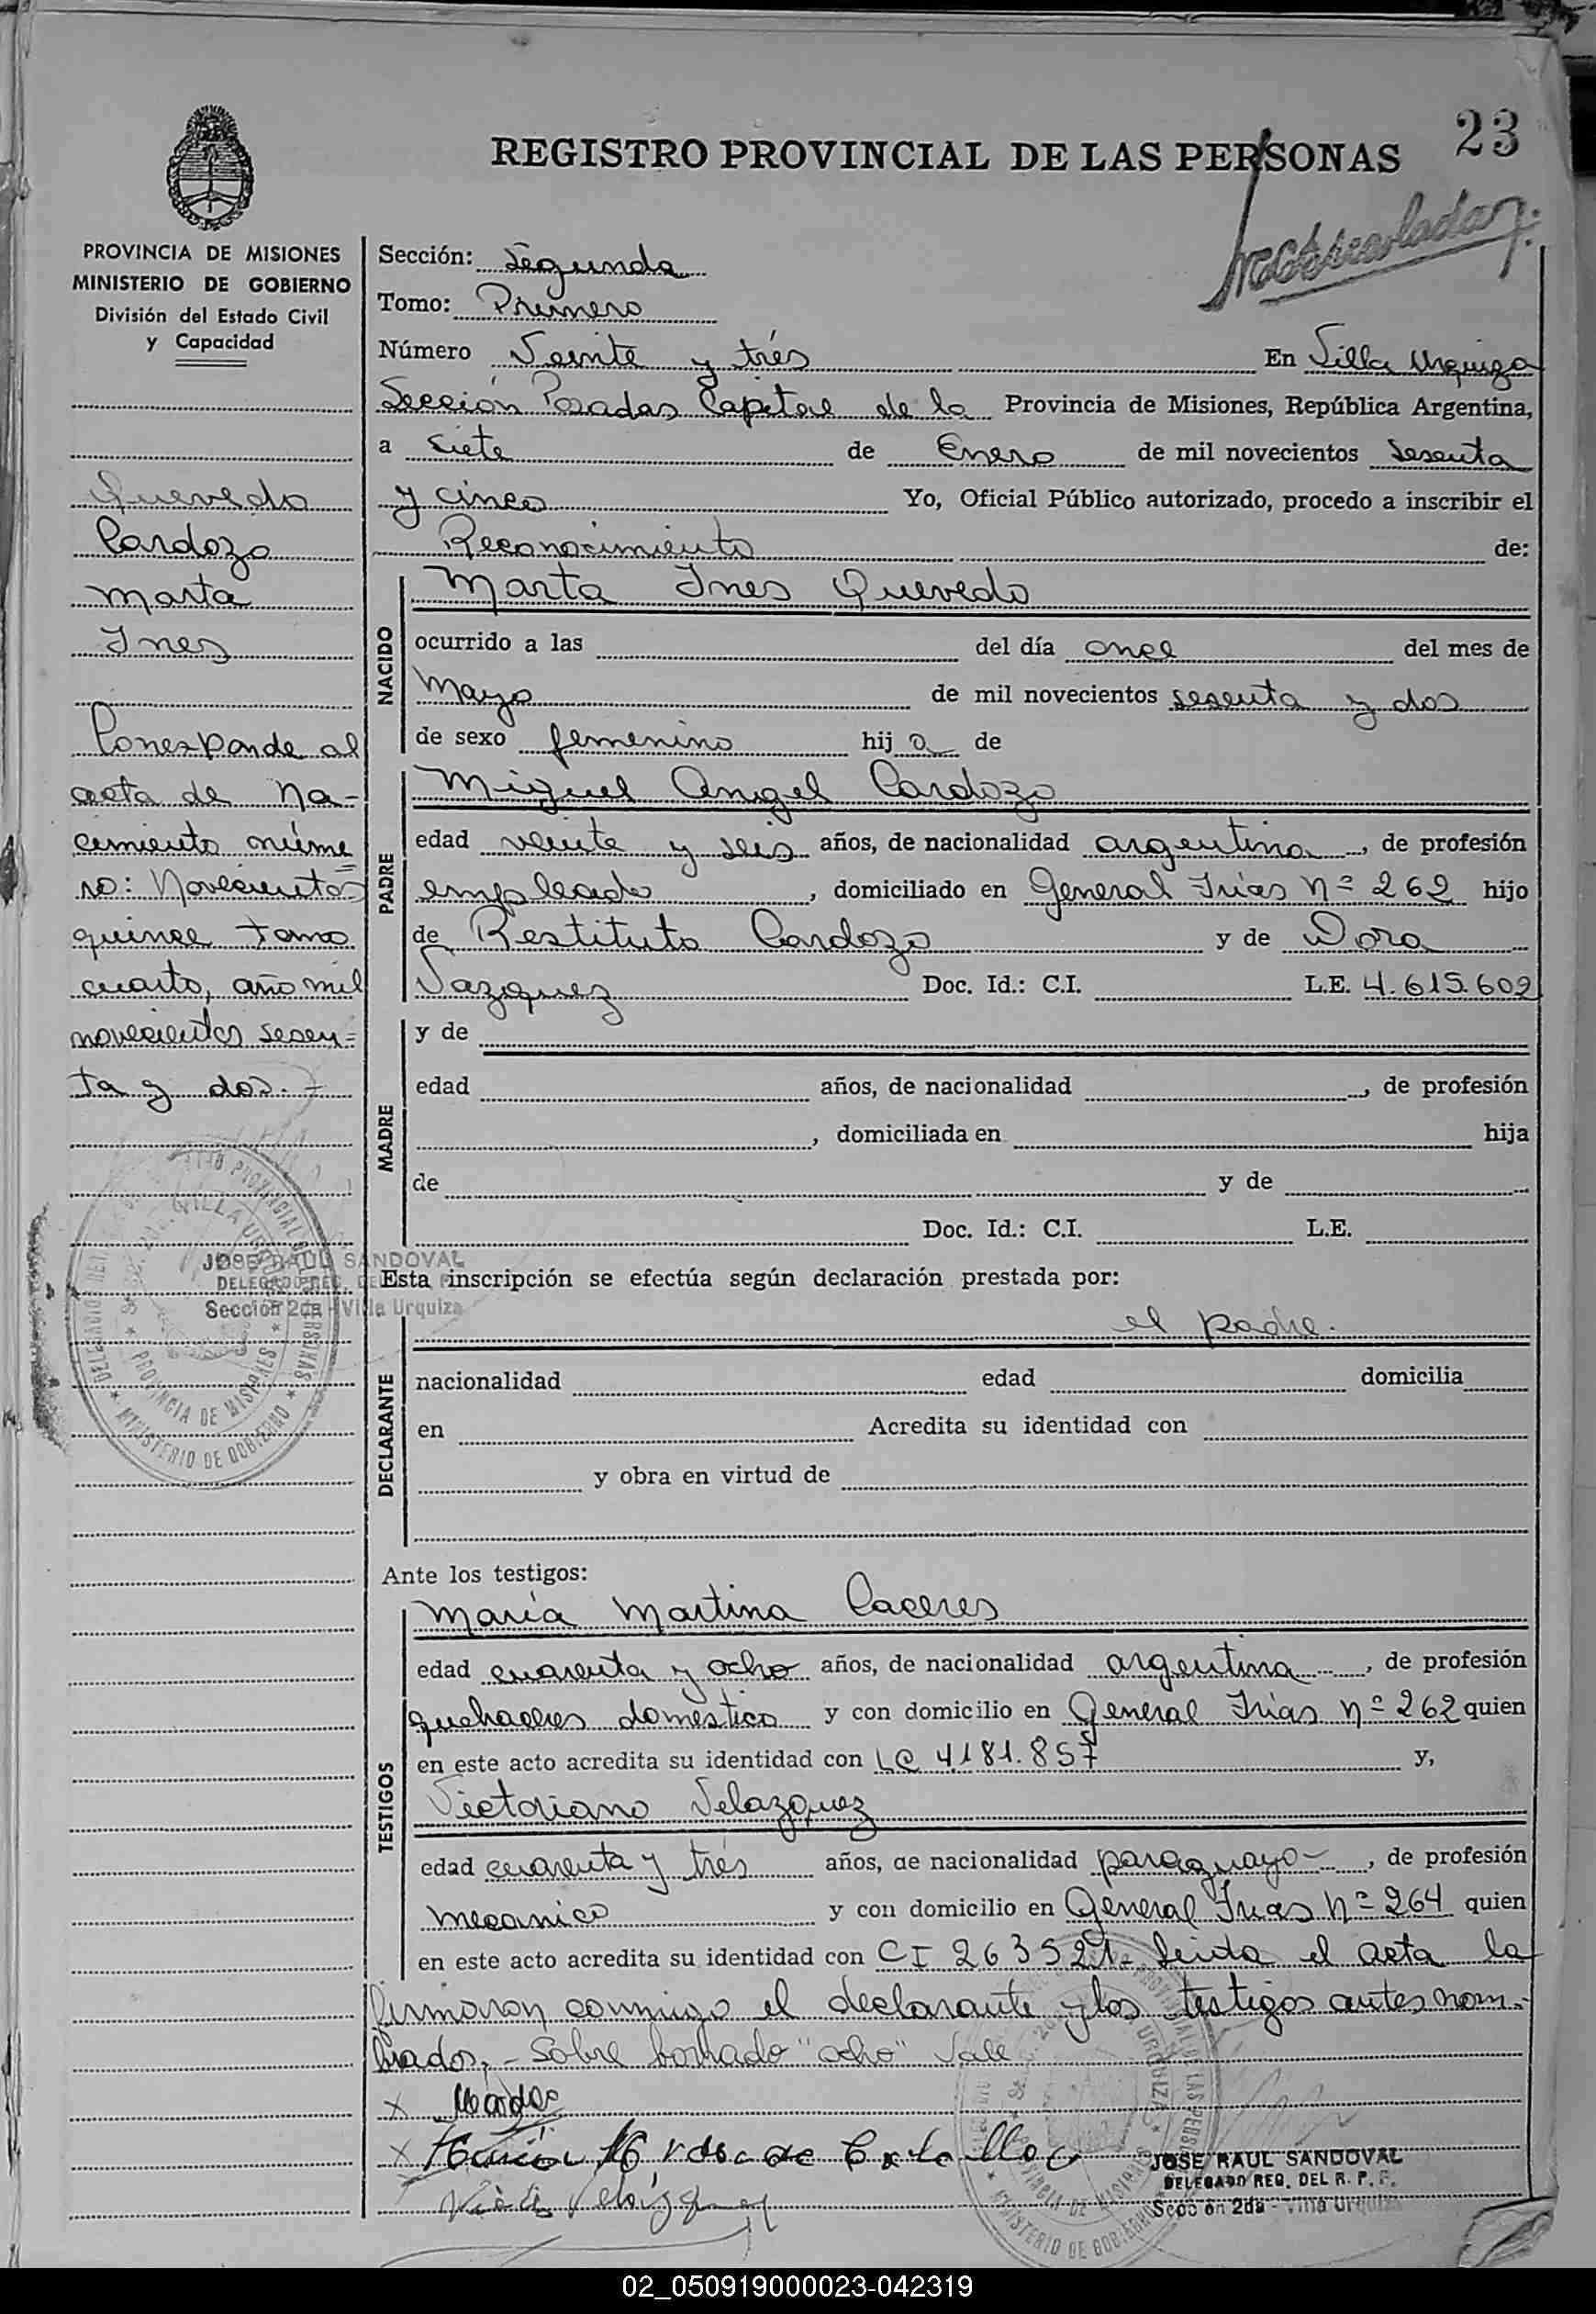 23
REGISTRO PROVINCIAL DE LAS PERSONAS
PROVINCIA DE MISIONES
MINISTERIO DE GOBIERNO
División del Estado Civil
y Capacidad
Quevedo
Cardozo
Marta
Ines
Corresponde al
acta de na-
cimiento núme
ro: Novecientos
quince tomo
cuarto, año mil
novecientos sesen=
ta y dos.-
JOSE RAUL SANDOVAL
DELEGADO REG. DE
Sección 2da - Villa Urquiza
Sección: Segunda
Tomo: Primero
Número Veinte y trés En Villa Urquiza
Sección Posadas Capital de la Provincia de Misiones, República Argentina,
a siete de Enero de mil novecientos sesenta
y cinco Yo, Oficial Público autorizado, procedo a inscribir el
Reconocimiento de:
NACIDO
Marta Ines Quevedo
ocurrido a las del día once del mes de
Mayo de mil novecientos sesenta y dos
de sexo femenino hij a de
PADRE
Miguel Angel Cardozo
edad veinte y seis años, de nacionalidad argentina, de profesión
empleado, domiciliado en General Frias Nº 262 hijo
de Restituto Cardozo y de Dora
Vazquez Doc. Id.: C.I. L.E. 4.615.602
MADRE
y de
edad años, de nacionalidad , de profesión
, domiciliada en hija
de y de
Doc. Id.: C.I. L.E.
Esta inscripción se efectúa según declaración prestada por:
DECLARANTE
el padre.
nacionalidad edad domicilia
en Acredita su identidad con
y obra en virtud de
Ante los testigos:
TESTIGOS
María Martina Caceres
edad cuarenta y ocho años, de nacionalidad argentina, de profesión
quehaceres domestico y con domicilio en General Frias Nº 262 quien
en este acto acredita su identidad con LC 4181.857 y,
Victoriano Velazquez
edad cuarenta y trés años, de nacionalidad paraguayo, de profesión
mecanico y con domicilio en General Frias Nº 264 quien
en este acto acredita su identidad con CI 263521- Leida el acta la
firmaron conmigo el declarante y los testigos antes nom-
brados.- Sobre borrado "ocho" Vale
JOSE RAUL SANDOVAL
DELEGADO REG. DEL R. P. P.
Sección 2da - Villa Urquiza
02_050919000023-042319